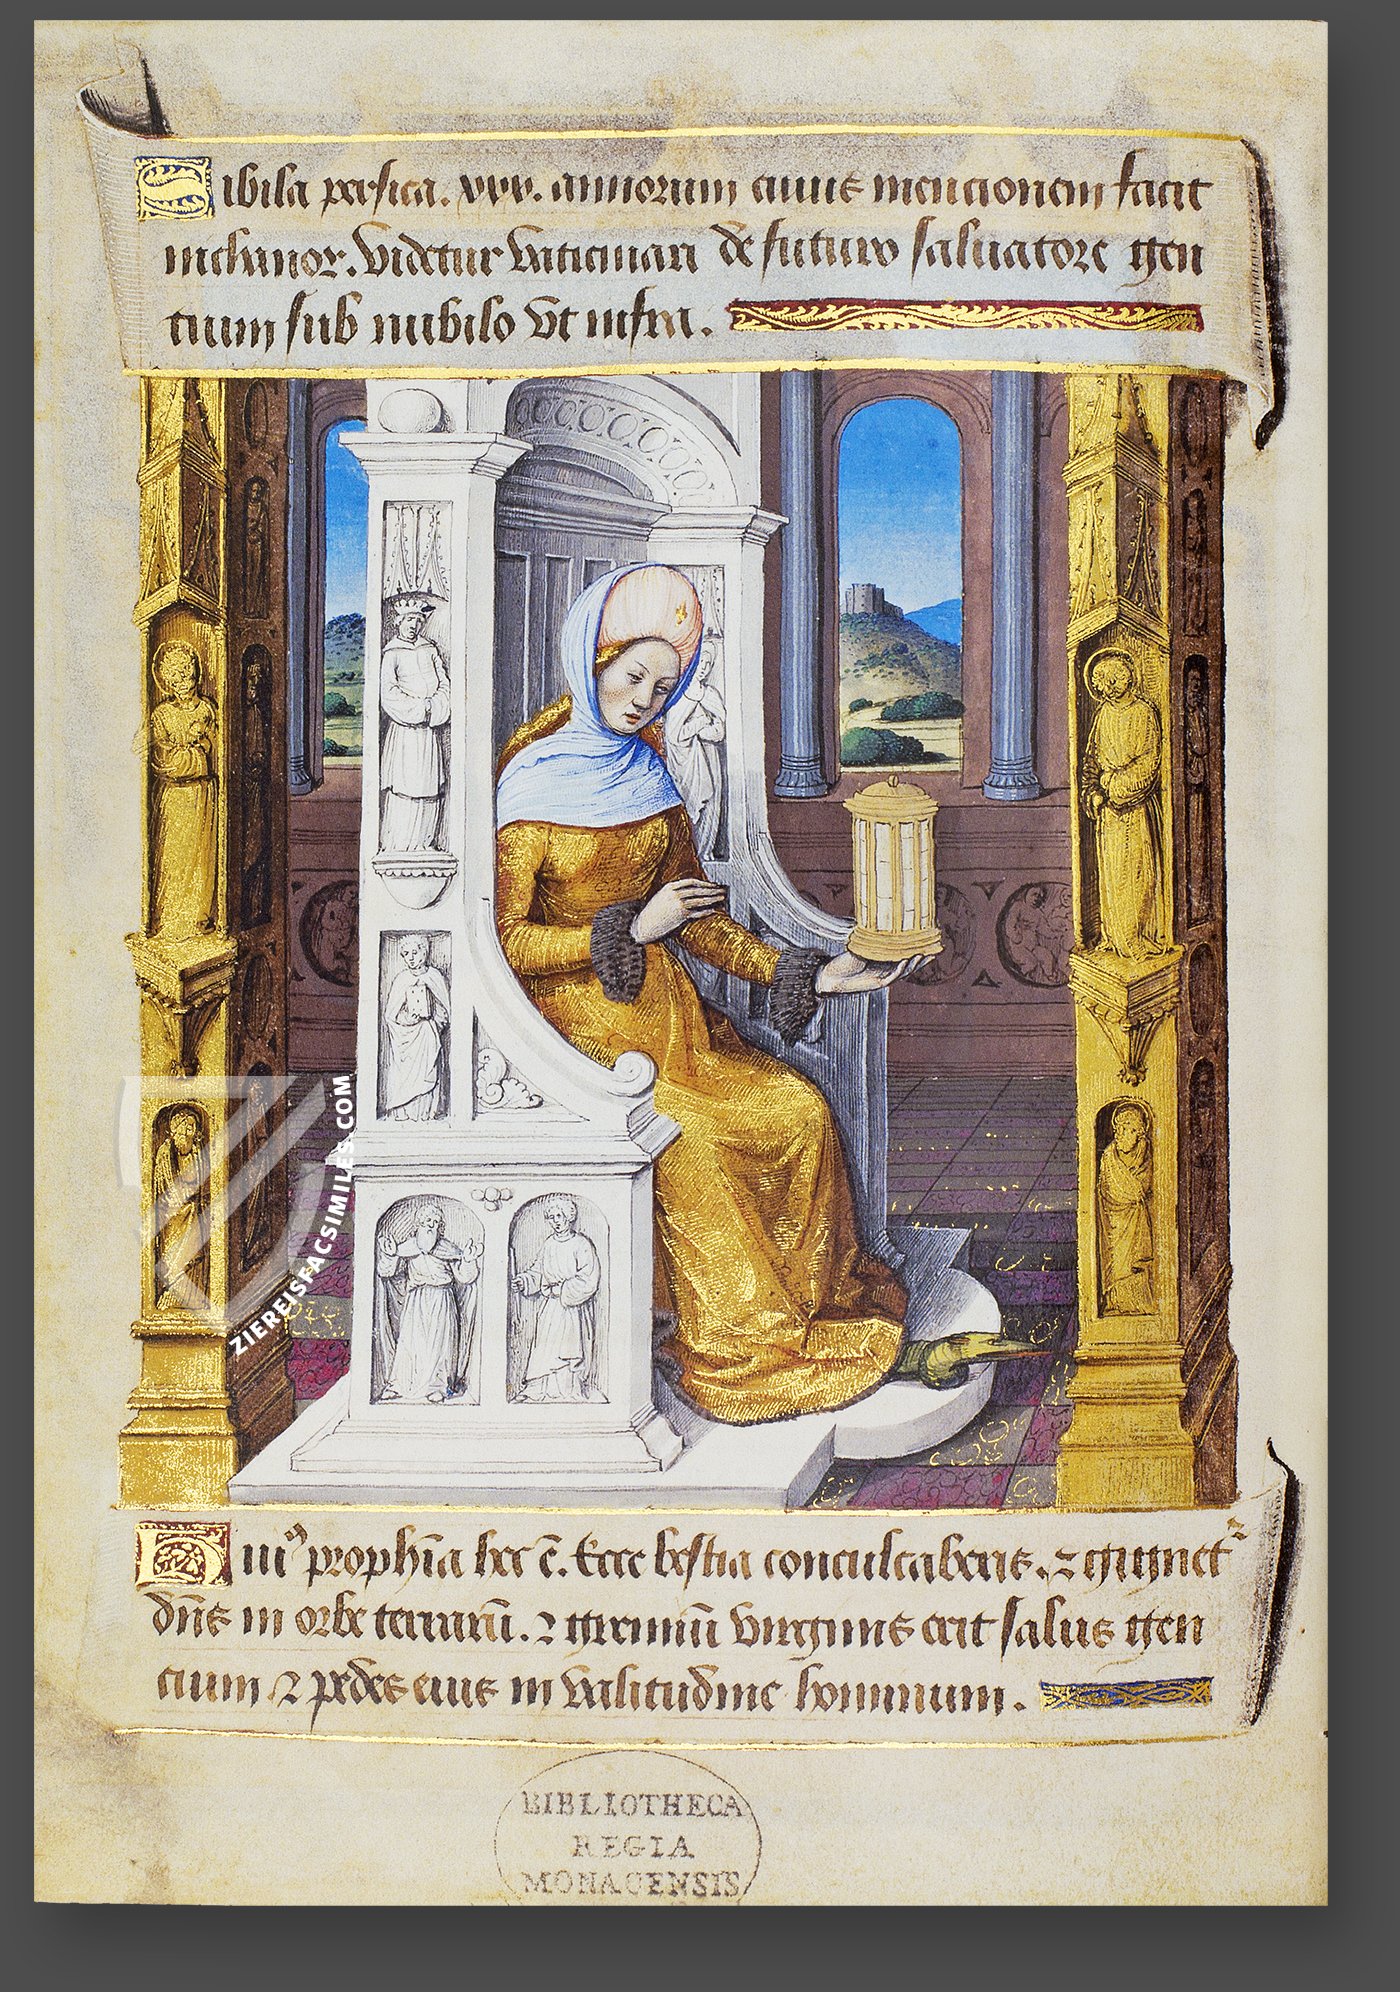 Sibila persica. xxx. annorum cuius mencionem facit
nichanor. Videtur vaticinari de futuro saluatore gen
cium sub nubilo vt infra.
ZIEREISFACSIMILES.COM
Huiꝰ prophīa hec ē. Ecce bestia conculcaberis. ⁊ gignetʳ
dn̄s in orbe terrarū. ⁊ gremiū virginis erit salus gen
cium ⁊ pedes eius in valitudine hominum.
BIBLIOTHECA
REGIA
MONACENSIS